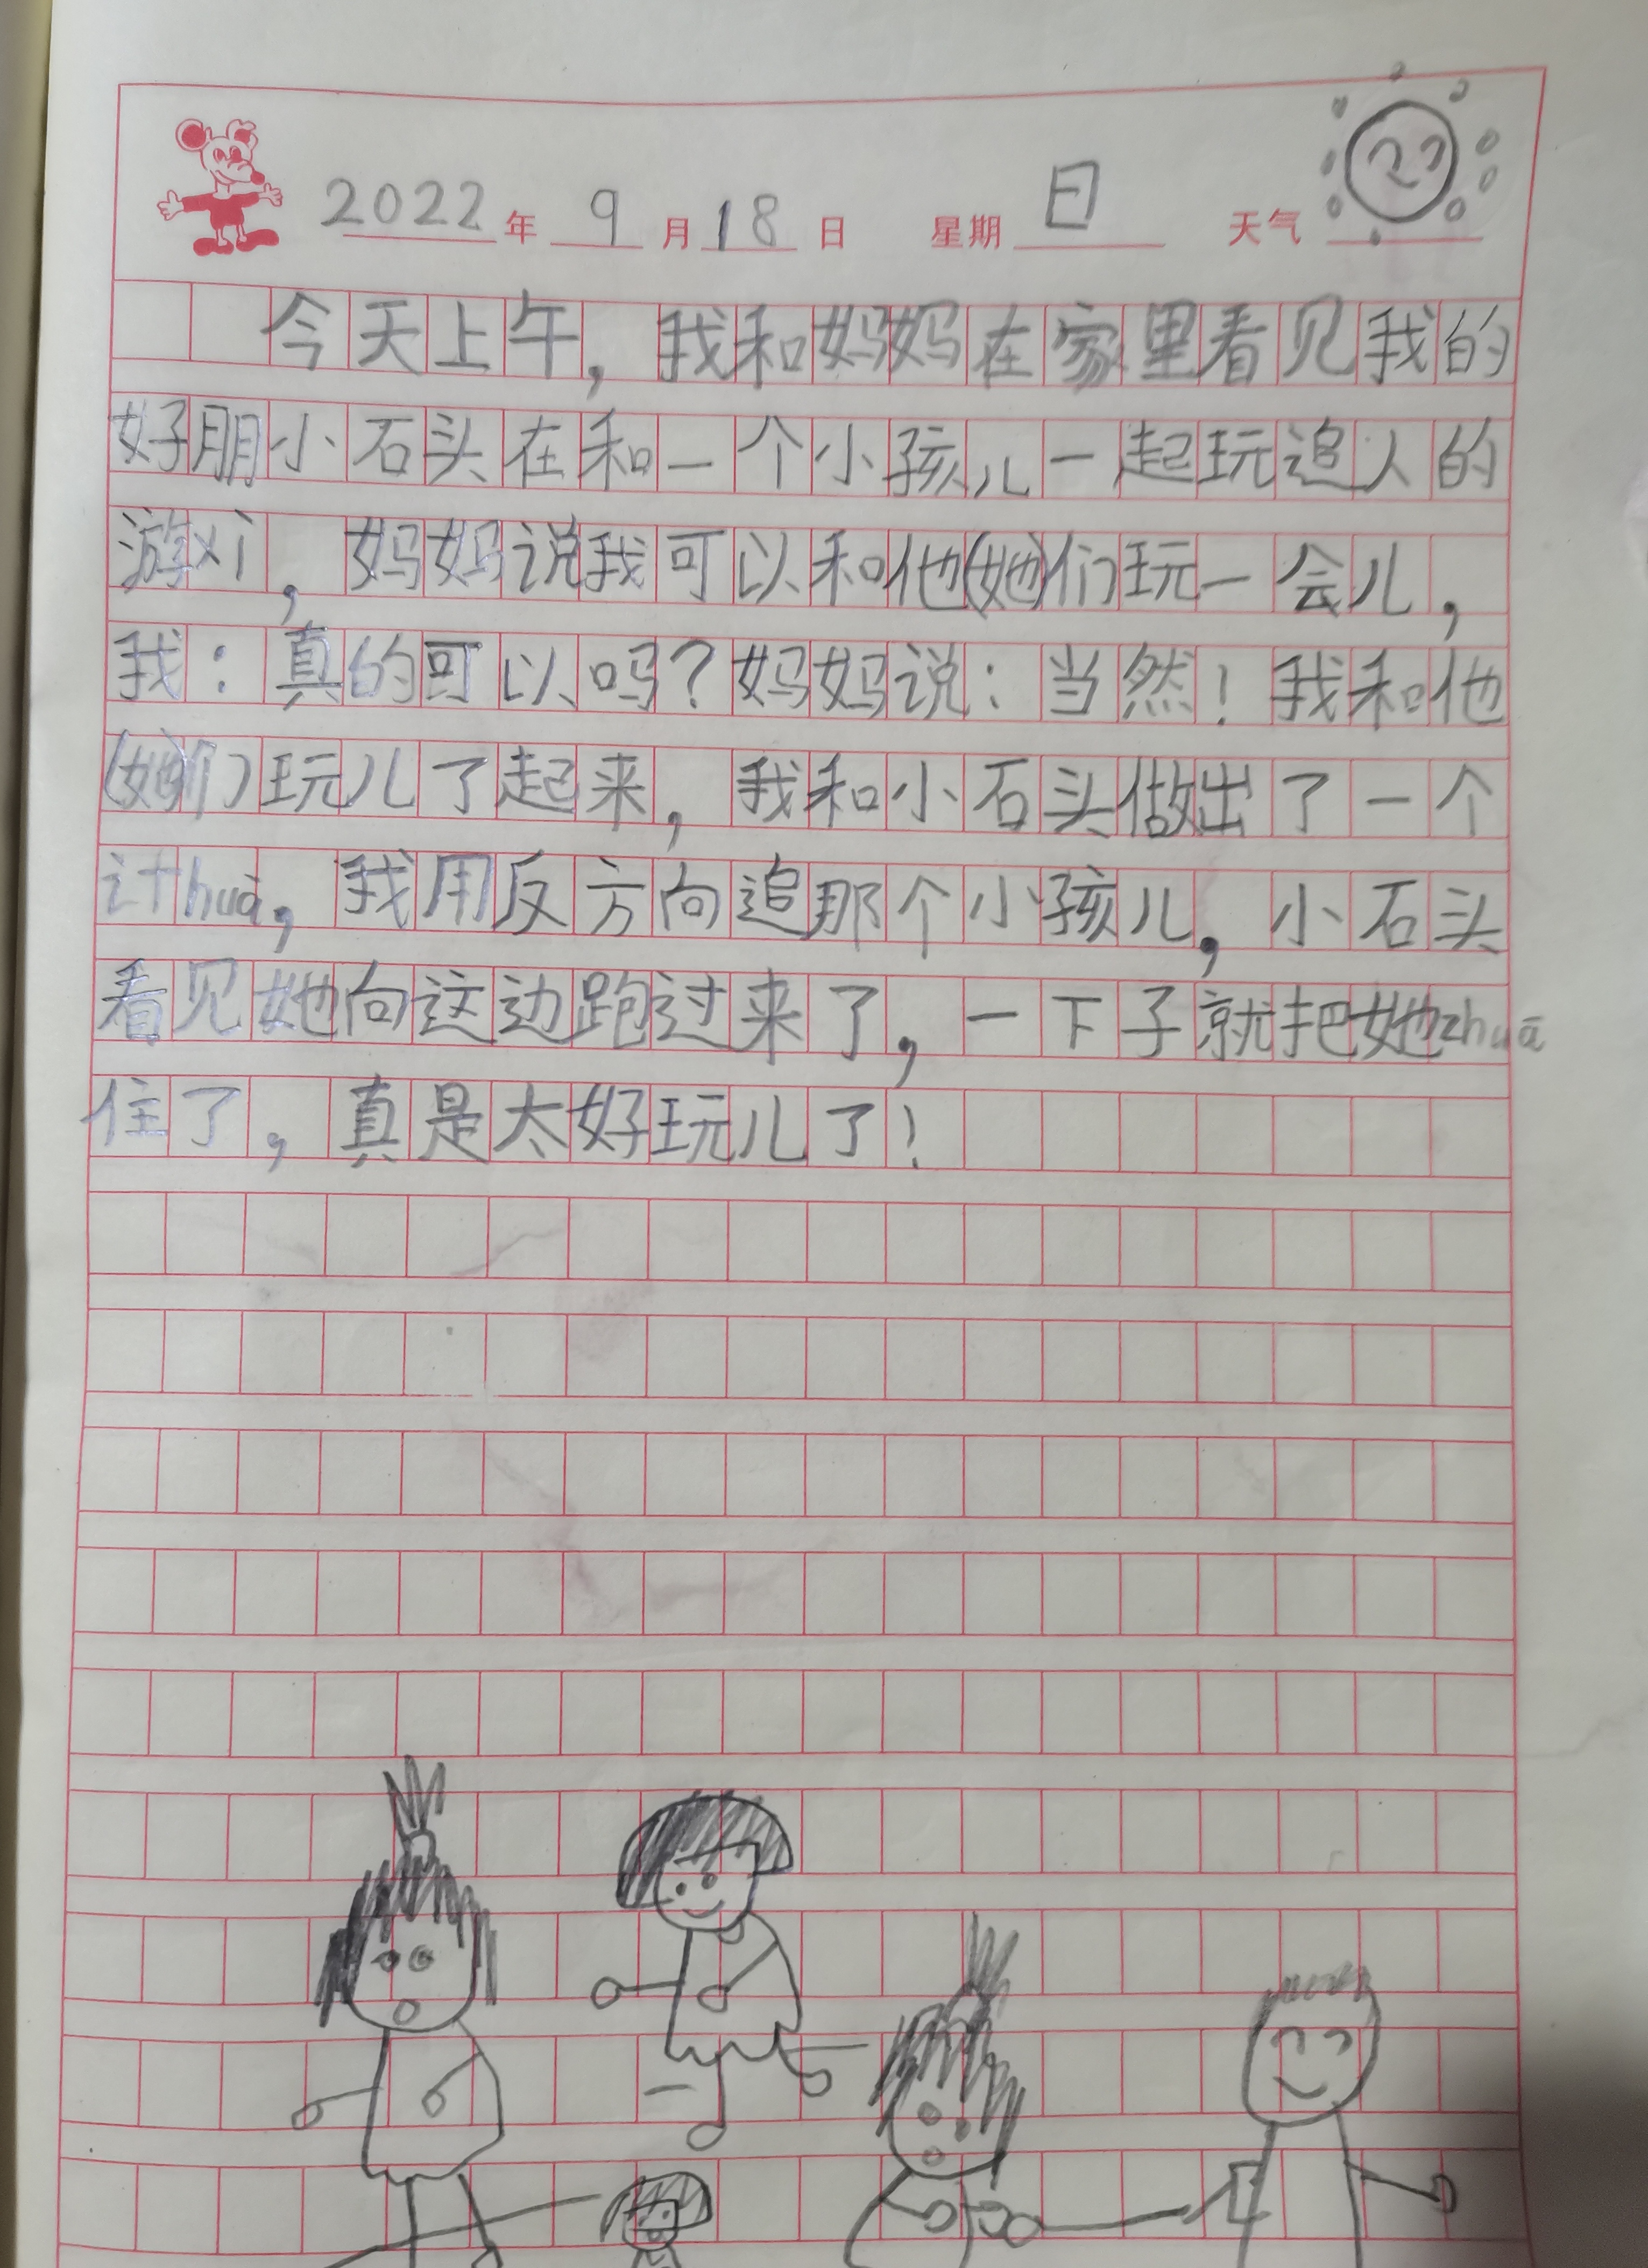 2022年 9月18日 星期日 天气
今天上午，我和妈妈在家里看见我的
好朋小石头在和一个小孩儿一起玩追人的
游xì，妈妈说我可以和他(她)们玩一会儿，
我：真的可以吗？妈妈说：当然！我和他
(她们)玩儿了起来，我和小石头做出了一个
计huà，我用反方向追那个小孩儿，小石头
看见她向这边跑过来了，一下子就把她zhuā
住了，真是太好玩儿了！